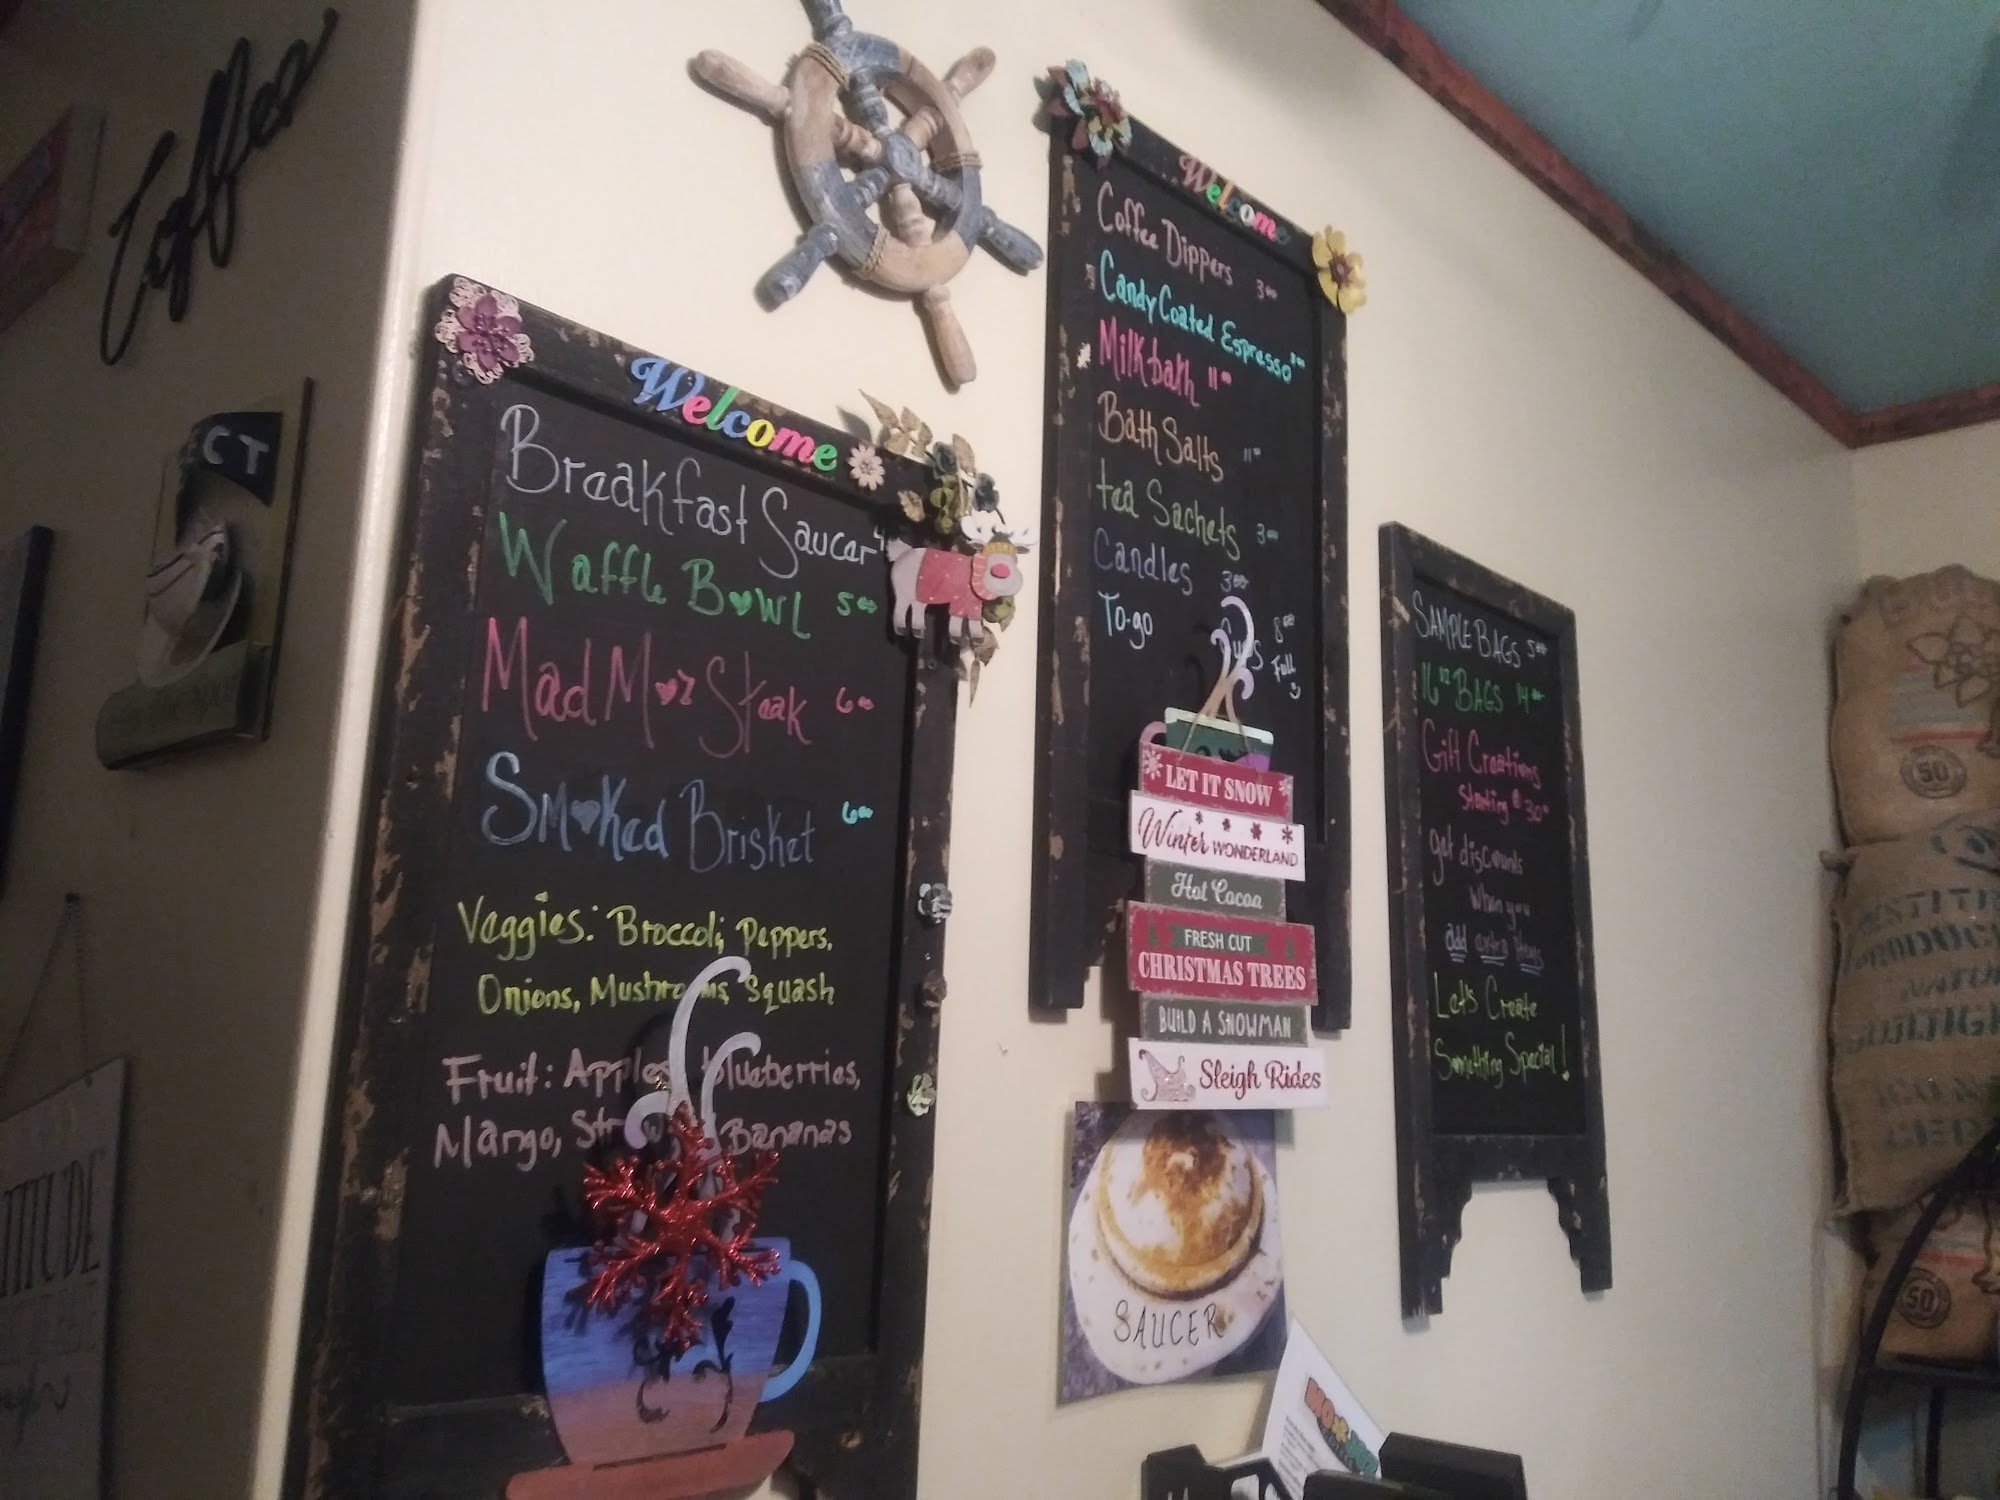 Coffee
CT
Welcome
Breakfast Saucer 4
Waffle Bowl 5.00
Mad Moz Steak 6.00
Smoked Brisket 6.00
Veggies: Broccoli, Peppers,
Onions, Mushrooms, Squash
Fruit: Apples, blueberries,
Mango, Bananas
Welcome
Coffee Dippers 3.00
Candy Coated Espresso
Milk bath 11.00
Bath Salts 11.00
tea Sachets 3.00
Candles 3.00
To-go Cups 8.00
Full
LET IT SNOW
Winter WONDERLAND
Hot Cocoa
FRESH CUT
CHRISTMAS TREES
BUILD A SNOWMAN
Sleigh Rides
SAUCER
SAMPLE BAGS 5.00
16 oz BAGS 14.00
Gift Creations
starting @ 30.00
get discounts
when you
add extra items
Let's Create
Something Special!
50
50